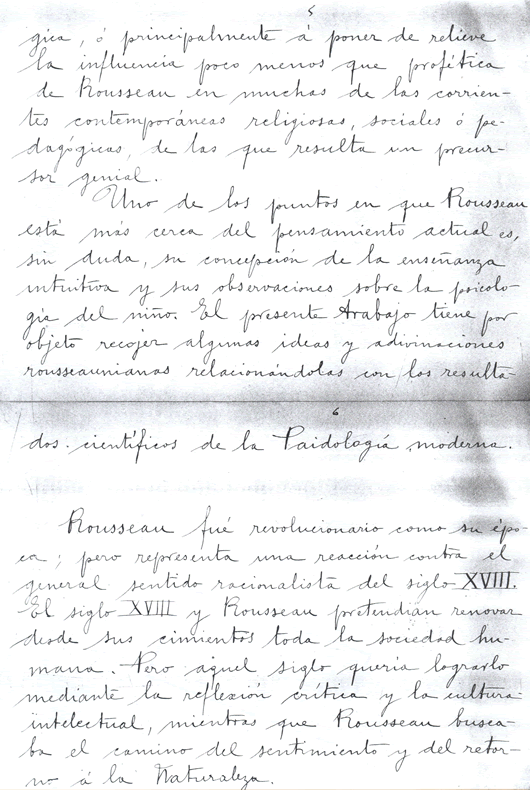 5
gica, ó principalmente á poner de relieve
la influencia poco menos que profética
de Rousseau en muchas de las corrien-
tes contemporáneas religiosas, sociales ó pe-
dagógicas, de las que resulta un precur-
sor genial.
Uno de los puntos en que Rousseau
está más cerca del pensamiento actual es,
sin duda, su concepción de la enseñanza
intuitiva y sus observaciones sobre la psicolo-
gía del niño. El presente trabajo tiene por
objeto recojer algunas ideas y adivinaciones
rousseaunianas relacionándolas con los resulta-
6
dos científicos de la Paidología moderna.
Rousseau fué revolucionario como su épo-
ca; pero representa una reacción contra el
general sentido racionalista del siglo XVIII.
El siglo XVIII y Rousseau pretendían renovar
desde sus cimientos toda la sociedad hu-
mana. Pero aquel siglo quería lograrlo
mediante la reflexión crítica y la cultura
intelectual, mientras que Rousseau busca-
ba el camino del sentimiento y del retor-
no á la Naturaleza.